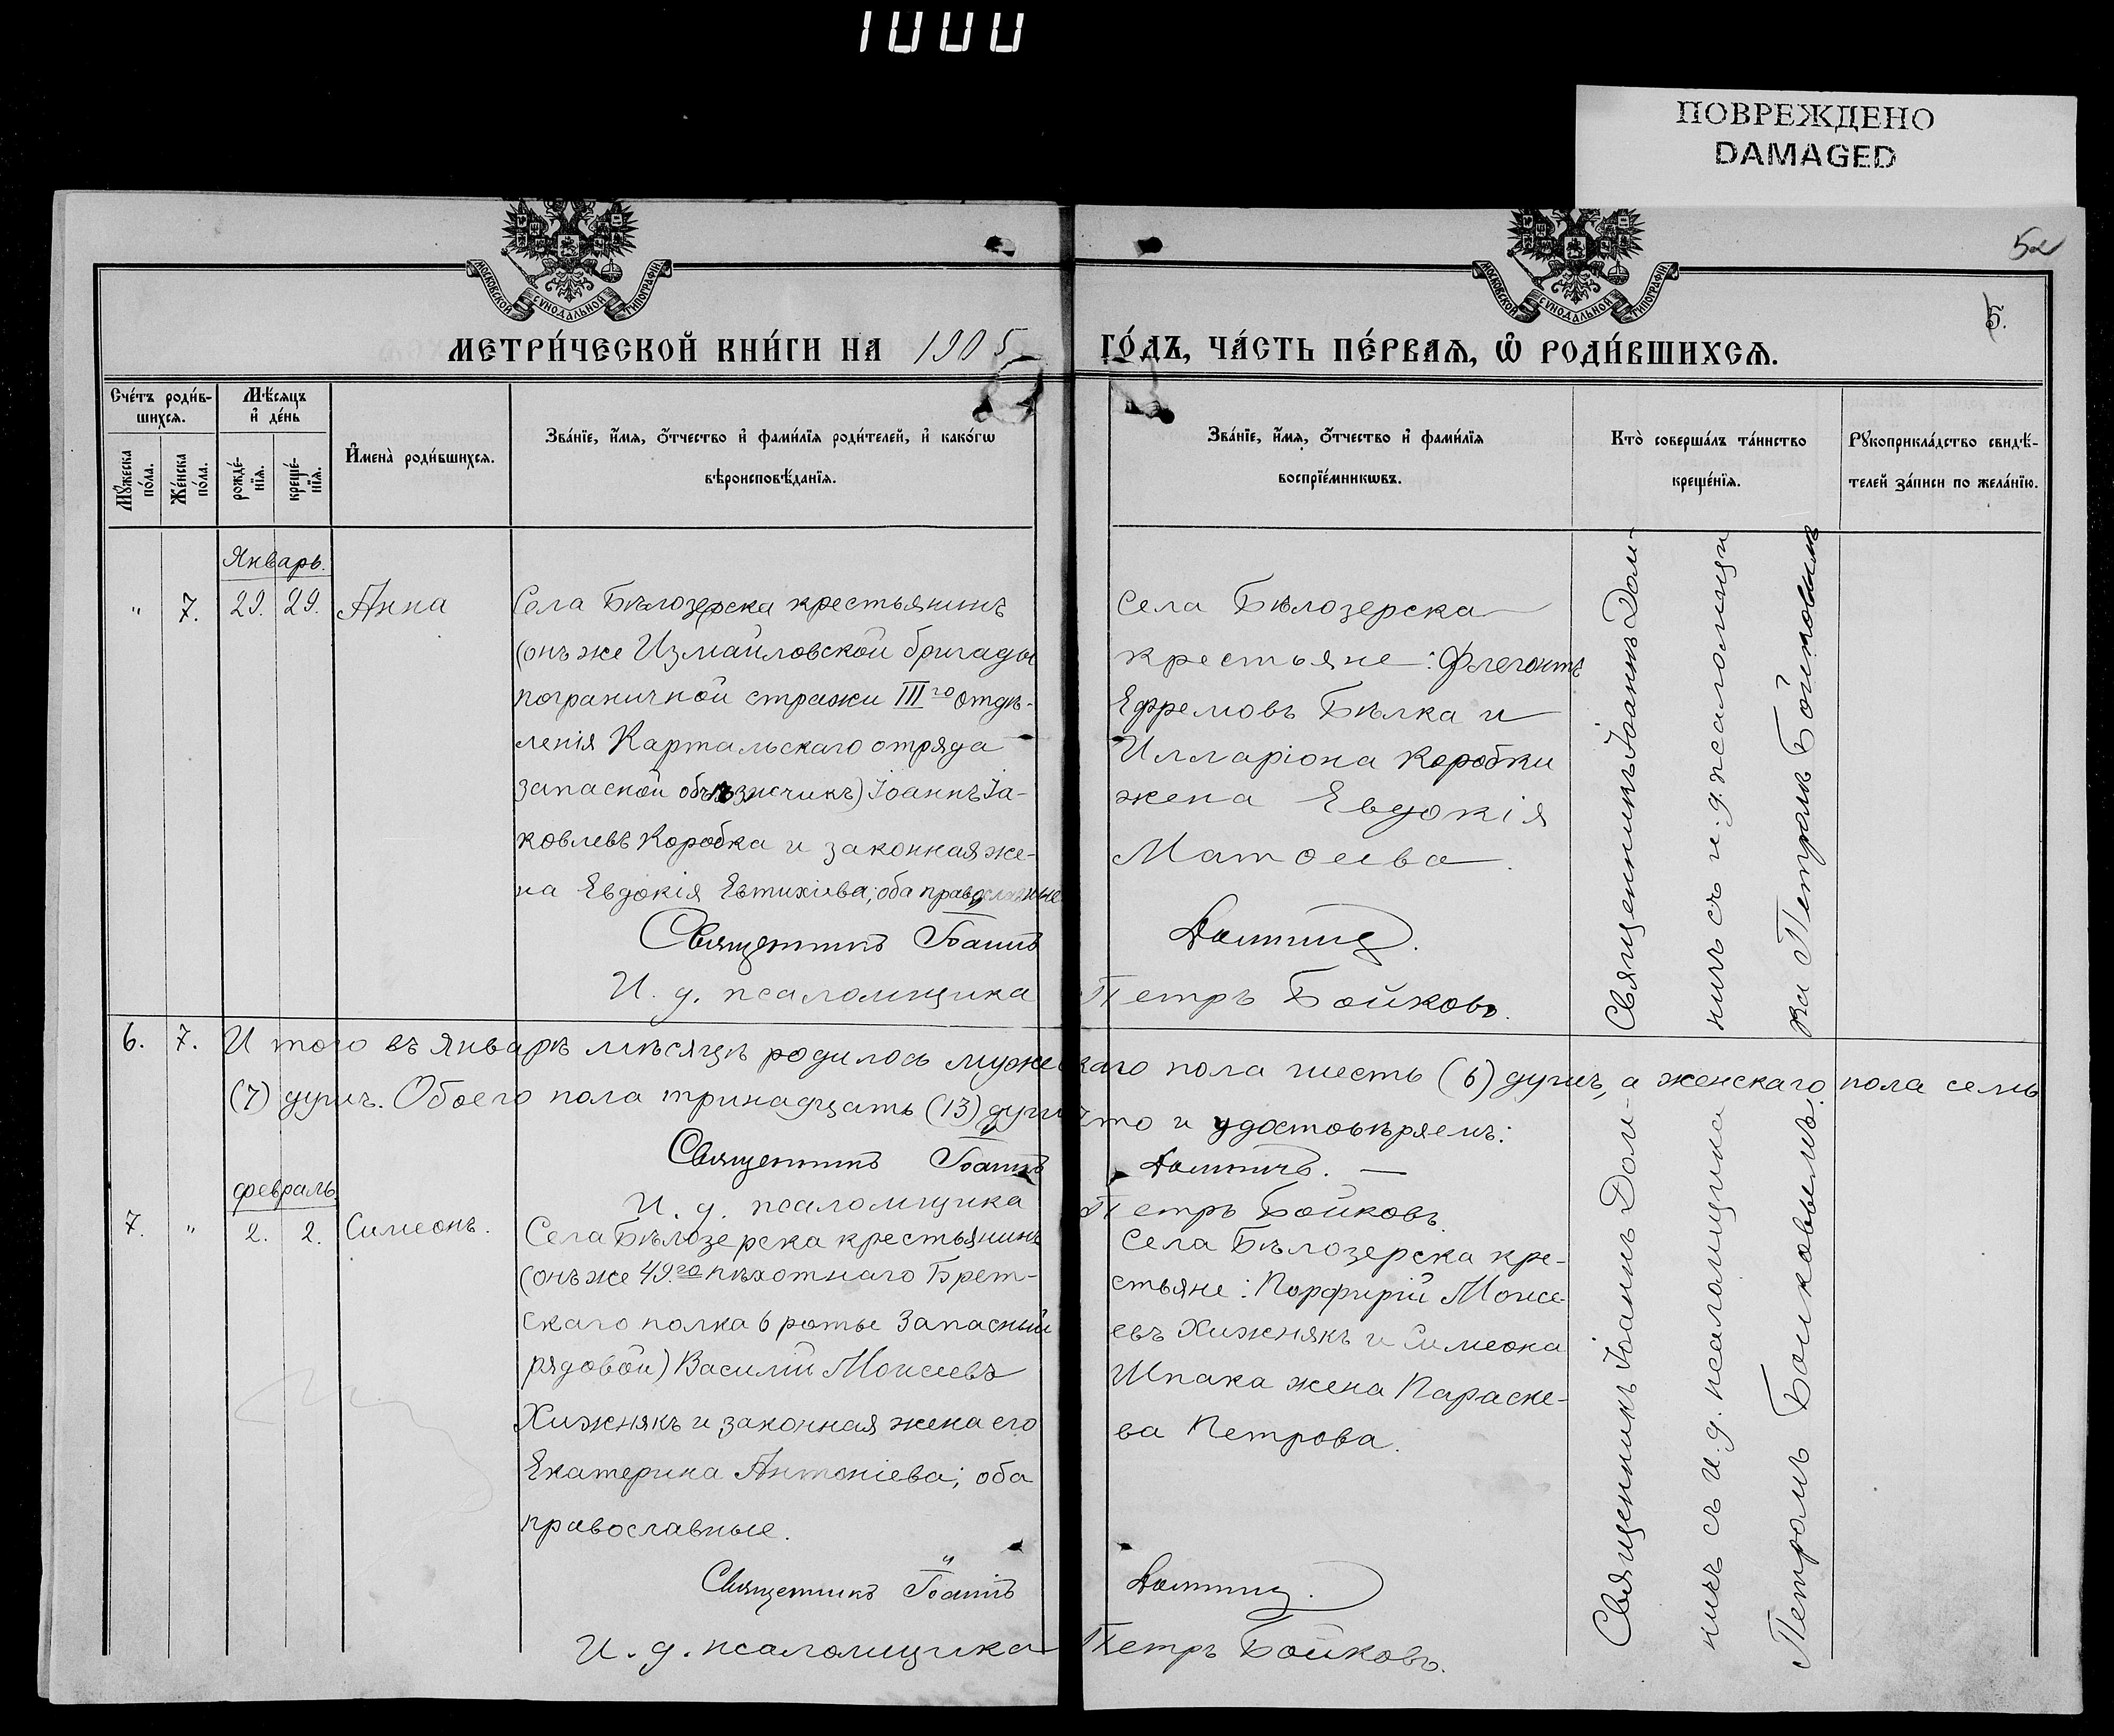 1000
ПОВРЕЖДЕНО
DAMAGED
52
5.
МОСКОВСКОЙ СѴНОДАЛЬНОЙ ТИПОГРАФІИ
МОСКОВСКОЙ СѴНОДАЛЬНОЙ ТИПОГРАФІИ
МЕТРИ́ЧЕСКОЙ КНИ́ГИ НА 1905 ГО́ДЪ, ЧА́СТЬ ПЕ́РВАѦ, Ѡ҆ РОДИ́ВШИХСѦ.
Сче́тъ роди́в-
шихсѧ.
Мѣ́сѧцъ
и҆ де́нь
Мꙋ́жеска
по́ла.
Же́нска
по́ла.
рожде́-
нїѧ.
креще́-
нїѧ.
И҆мена̀ роди́вшихсѧ.
Зва́нїе, и҆́мѧ, ѻ҆́тчество и҆ фами́лїѧ роди́телей, и҆ како́гѡ
вѣроисповѣ́данїѧ.
Зва́нїе, и҆́мѧ, ѻ҆́тчество и҆ фами́лїѧ
воспрїе́мникѡвъ.
Кто̀ соверша́лъ та́инство
креще́нїѧ.
Рꙋкоприкла́дство свидѣ́-
телей за́писи по жела́нїю.
Январь.
" 7. 29. 29. Анна
Села Бѣлозерска крестьянинъ
(онъ же Измаиловской бригады
пограничной стражи III го отдѣ-
ленія Картальскаго отряда
запасной объѣзчикъ) Іоаннъ Іа-
ковлевъ Коробка и законная же-
на Евдокія Евтихіева; оба православные
Священникъ Іоаннъ
И. д. псаломщика
Села Бѣлозерска
крестьяне: Флегонтъ
Ефремовъ Бѣлка и
Илларіона Коробки
жена Евдокія
Матѳеева.
Домнич.
Петръ Бойковъ.
Священникъ Іоаннъ Дом-
ничъ съ и. д. псаломщи
ка Петромъ Бойковымъ
6. 7. Итого въ Январѣ мѣсяцѣ родилось мужескаго пола шесть (6) душъ, а женскаго пола семь
(7) душъ. Обоего пола тринадцать (13) душъ что и удостовѣряемъ:
Священникъ Іоаннъ Домничъ. —
И. д. псаломщика Петръ Бойковъ.
Февраль.
7. " 2. 2. Симеонъ.
Села Бѣлозерска крестьянинъ
(онъ же 49.го пѣхотнаго Брет-
скаго полка 6 роты Запасный
рядовой) Василій Моисеевъ
Хижнякъ и законная жена его
Екатерина Антоніева; оба
православные.
Священникъ Іоаннъ
И. д. псаломщика
Села Бѣлозерска кре-
стьяне: Порфирій Моисе-
евъ Хижнякъ и Симеона
Шпака жена Параске-
ва Петрова.
Домнич.
Петръ Бойковъ.
Священникъ Іоаннъ Дом-
ничъ съ и. д. псаломщика
Петромъ Бойковымъ.